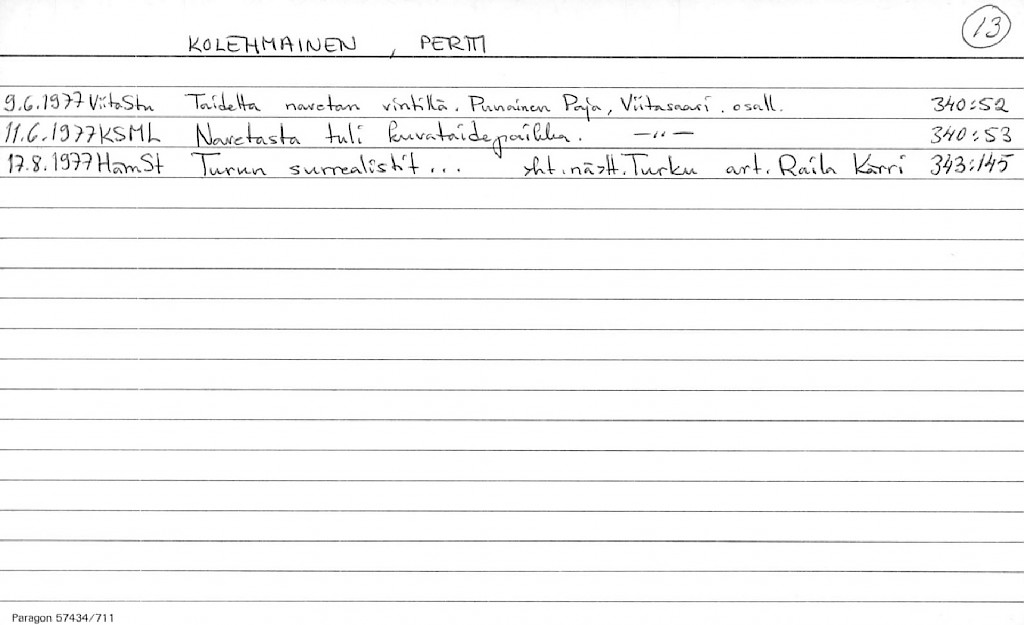 13
KOLEHMAINEN, PERTTI
9.6.1977 ViitaSeu Taidetta navetan vintillä. Punainen Paja, Viitasaari. osall. 340:52
11.6.1977 KSML Navetasta tuli kuvataidepaikka. —"— 340:53
17.8.1977 HämSt Turun surrealistit... yht.näytt. Turku art. Raila Kärri 343:145
Paragon 57434/711